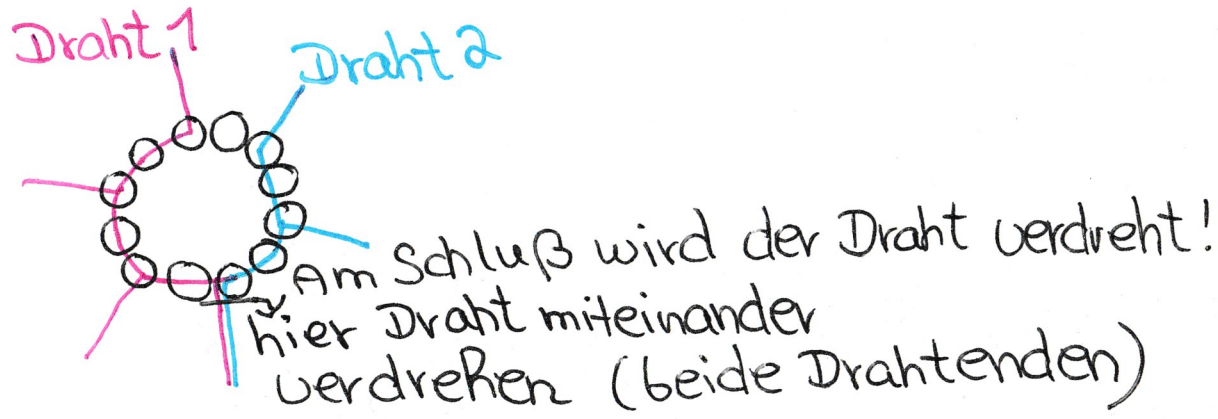 Draht 1
Draht 2
Am Schluß wird der Draht verdreht!
hier Draht miteinander
verdrehen (beide Drahtenden)